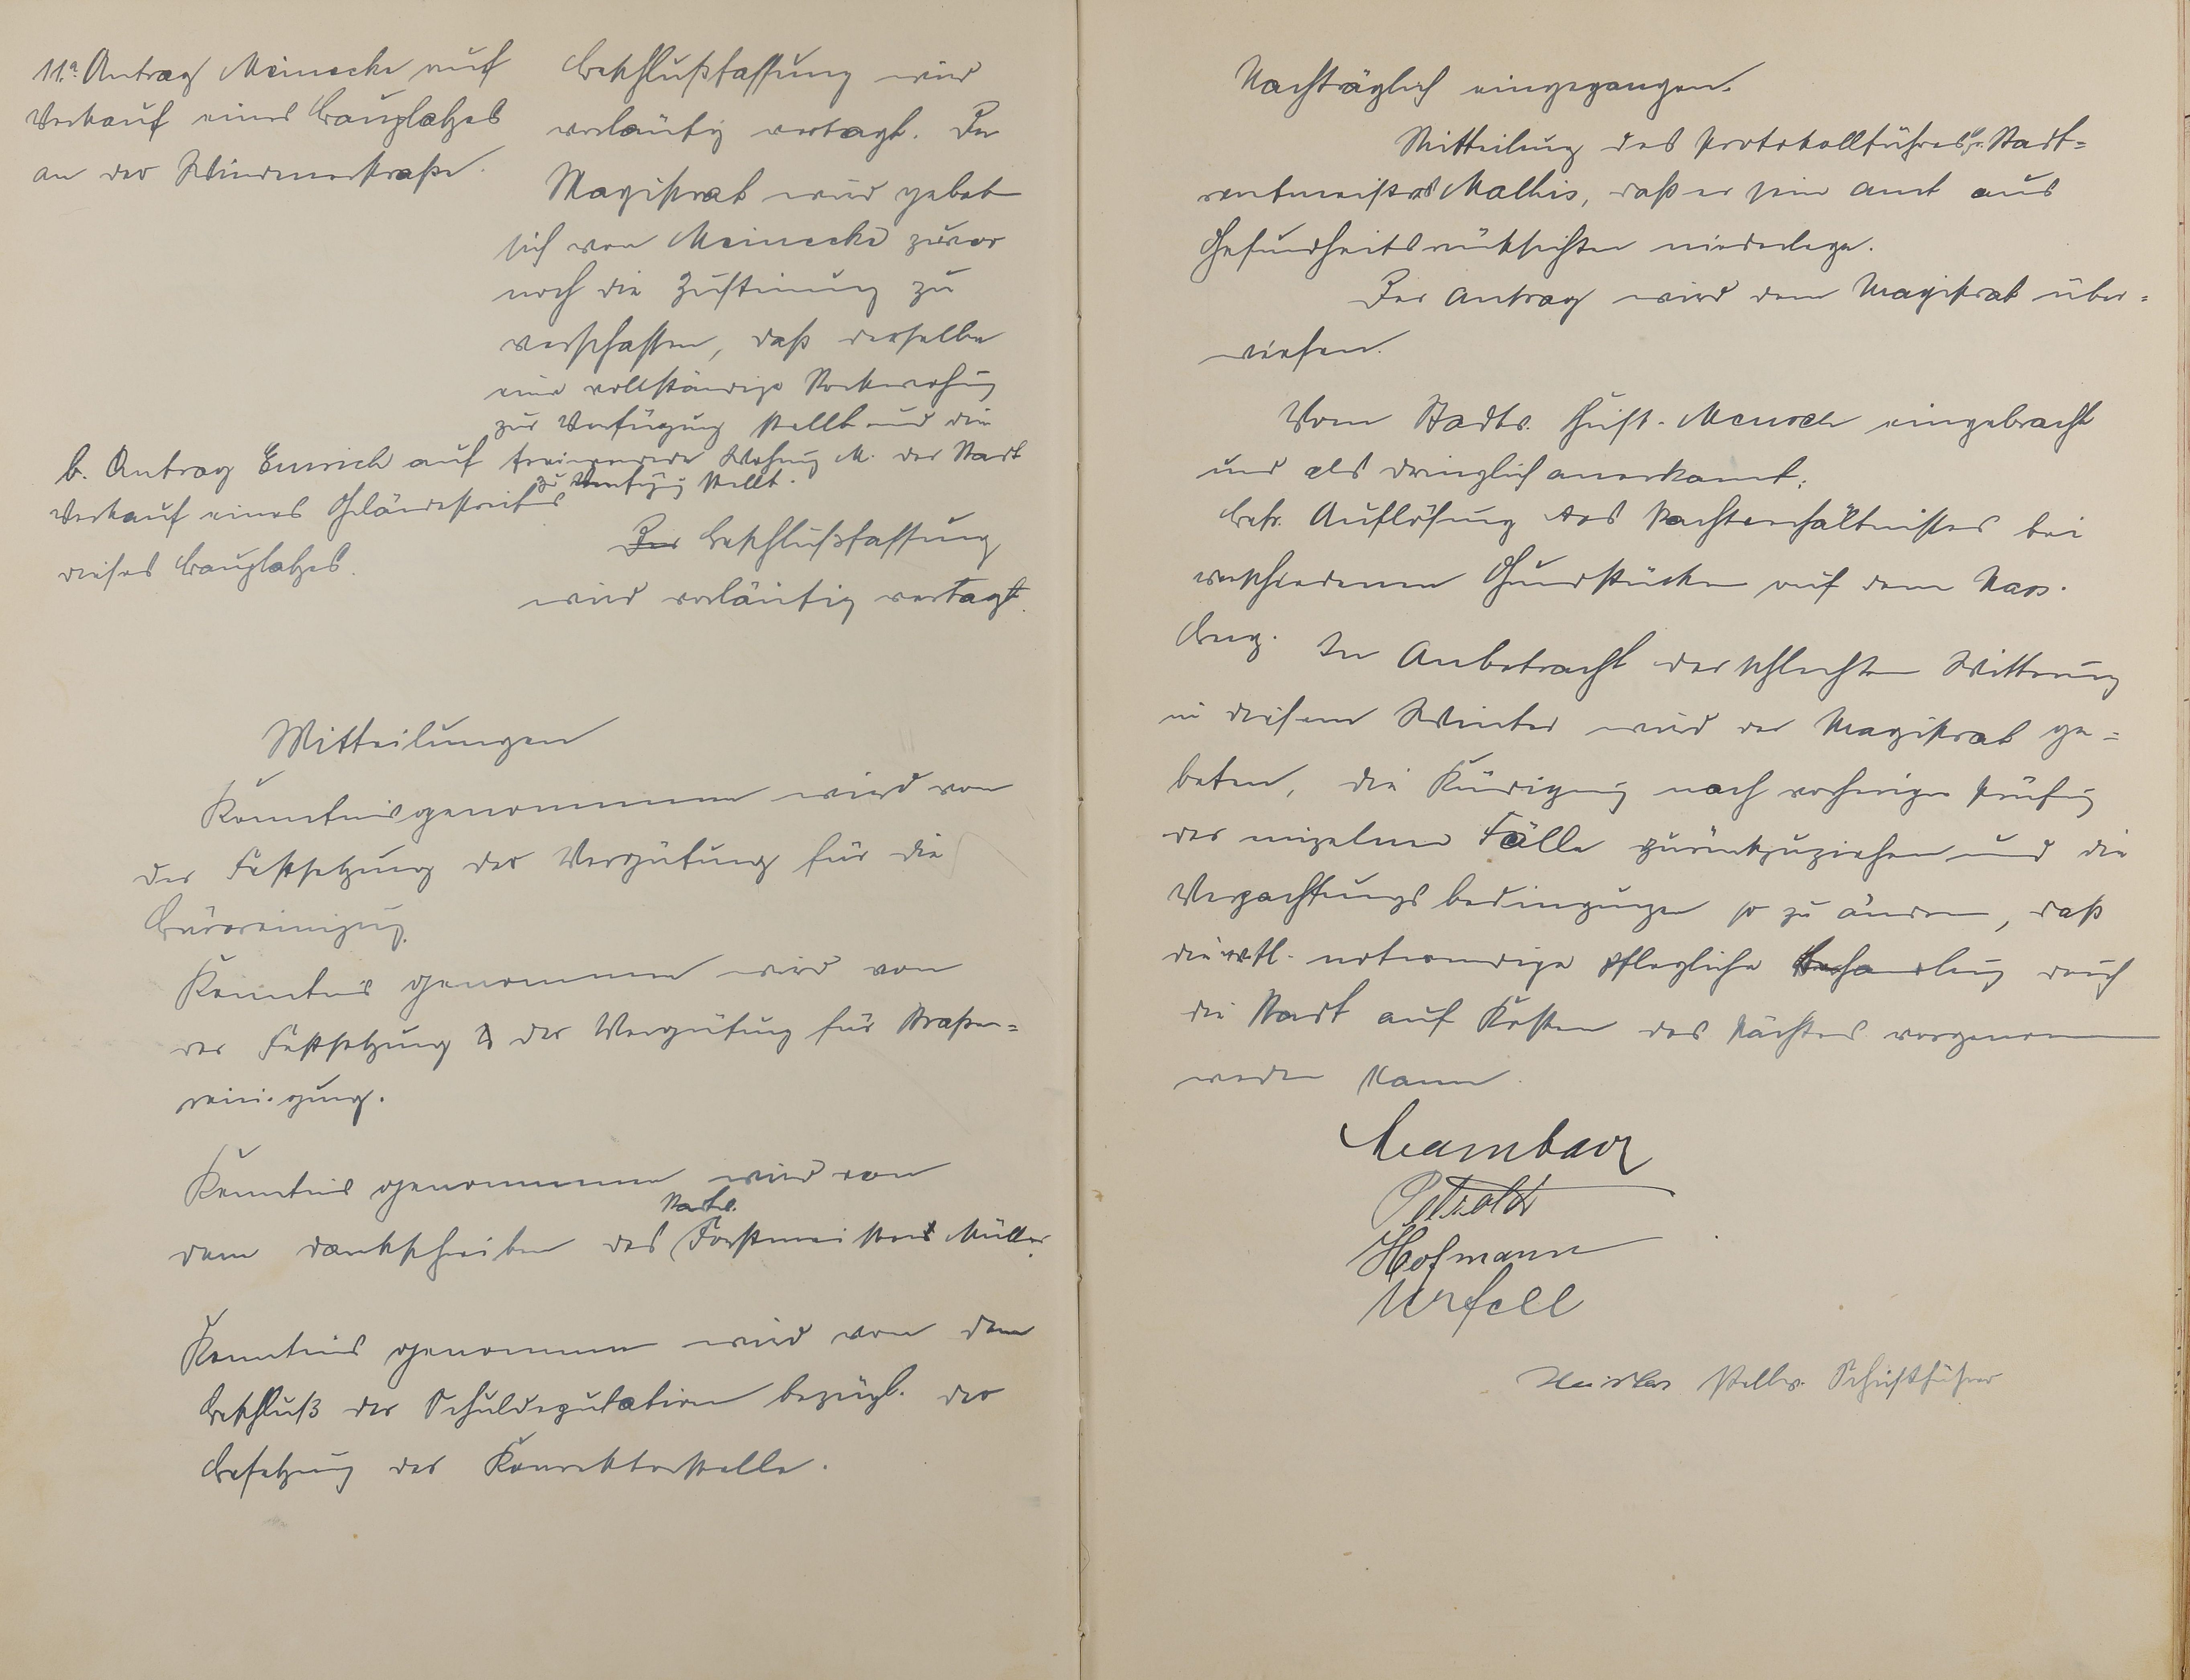 11.a Antrag Meinecke auf
Verkauf eines Bauplatzes
an der Windmerstraße.
Beschlußfassung wird
vorläufig vertagt. Der
Magistrat wird gebet
sich von Meinecke zuvor
noch die Zustimung zu
verschaffen, daß derselbe
eine vollständige Stockwohng
zur Verfügung stellt und die
freiwerdende Wohng M. der Stadt
zu Verfügg stellt.
b. Antrag Emrich auf
Verkauf eines Geländestreifes
dieses Bauplatzes.
Der Beschlußfassung
wird vorläufig vertagt.
Mitteilungen
Kenntnisgenommen wird von
der Festsetzung der Vergütung für die
Büroreinigug.
Kenntnis genommen wird von
der Festsetzung der Vergütung für Straßen=
reinigung.
Kenntnis genommen wird von
dem Dankschreiben des Stadtv. Forstmeisters Müller.
Kenntnis genommen wird von dem
Beschluß der Schuldeputation bezügl. der
Besetzung der Konrektorstelle.
Nachträglich eingegangen.
Mitteilung des Protokollführers H. Stadt=
rentmeisters Mathis, daß er sein Amt aus
Gesundheitsrücksichten niederlege.
Der Antrag wird dem Magistrat über=
wiesen.
Vom Stadtv. Hust-Meusch eingebracht
und als dringlich anerkannt:
Betr. Auflösung des Pachtverhältnisses bei
verschiedenen Grundstücken auf dem
Berg. In Anbetracht der schlechten Witterung
in diesem Winter wird der Magistrat ge=
beten, die Kündigung nach vorheriger Prüfug
der einzelnen Fälle zurückzuziehen und die
Verpachtungsbedingungen so zu ändern, daß
die evtl. notwendige pflegliche Behandlug durch
die Stadt auf Kosten des Pächters vorgenommen
werden kann.
Hofmann
stellv. Schriftführer